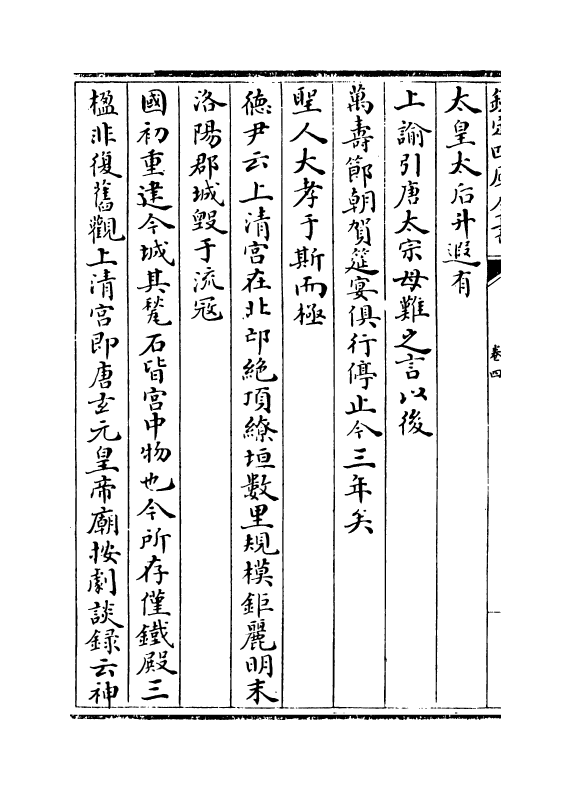 欽定四庫全書
卷四
太皇太后升遐有
上諭引唐太宗母難之言以後
萬壽節朝賀筵宴俱行停止今三年矣
聖人大孝于斯而極
德尹云上清宮在北邙絶頂繚垣數里規模鉅麗明末
洛陽郡城毀于流冦
國初重建今城其甃石皆宮中物也今所存僅鐵殿三
楹非復舊觀上清宮即唐玄元皇帝廟按劇談録云神